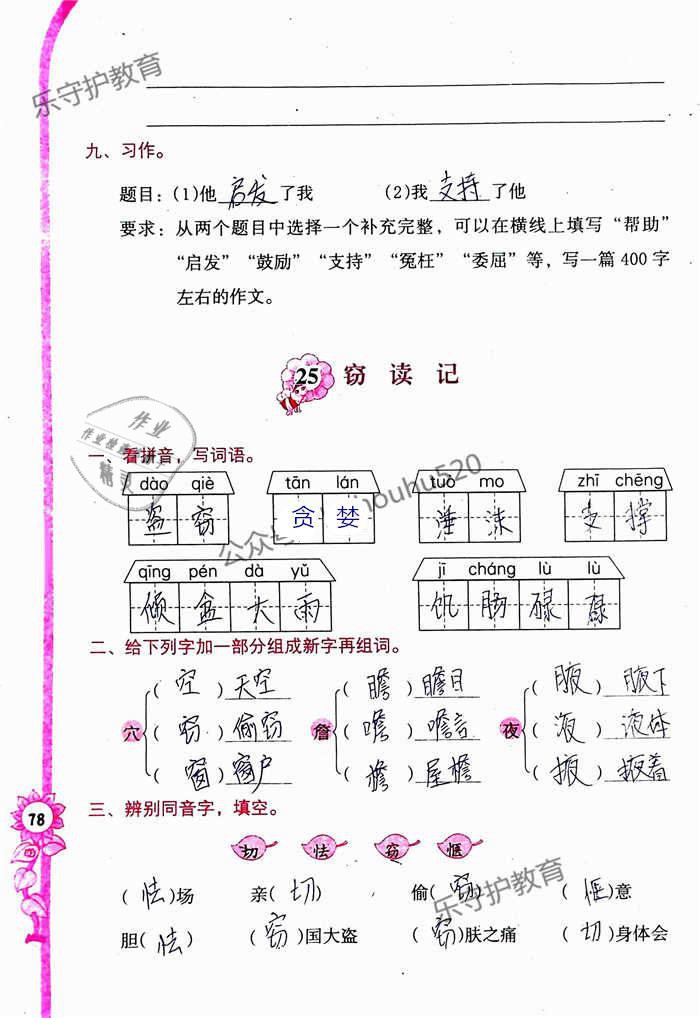 乐守护教育
九、习作。
题目：(1)他 启发 了我 (2)我 支持 了他
要求：从两个题目中选择一个补充完整，可以在横线上填写“帮助”
“启发”“鼓励”“支持”“冤枉”“委屈”等，写一篇 400 字
左右的作文。
25 窃读记
作业
作业检查小助手
精灵
一、看拼音，写词语。
dào qiè tān lán tuò mo zhī chēng
盗窃 贪婪 唾沫 支撑
公众 ouhu520
qīng pén dà yǔ jī cháng lù lù
倾盆大雨 饥肠碌碌
二、给下列字加一部分组成新字再组词。
(空)天空 (瞻)瞻目 (腋)腋下
穴 (窃)偷窃 詹 (噡)噡言 夜 (液)液体
(窗)窗户 (檐)屋檐 (掖)掖着
三、辨别同音字，填空。
78
切 怯 窃 惬
(怯)场 亲(切) 偷(窃) (惬)意
乐守护教育
胆(怯) (窃)国大盗 (窃)肤之痛 (切)身体会